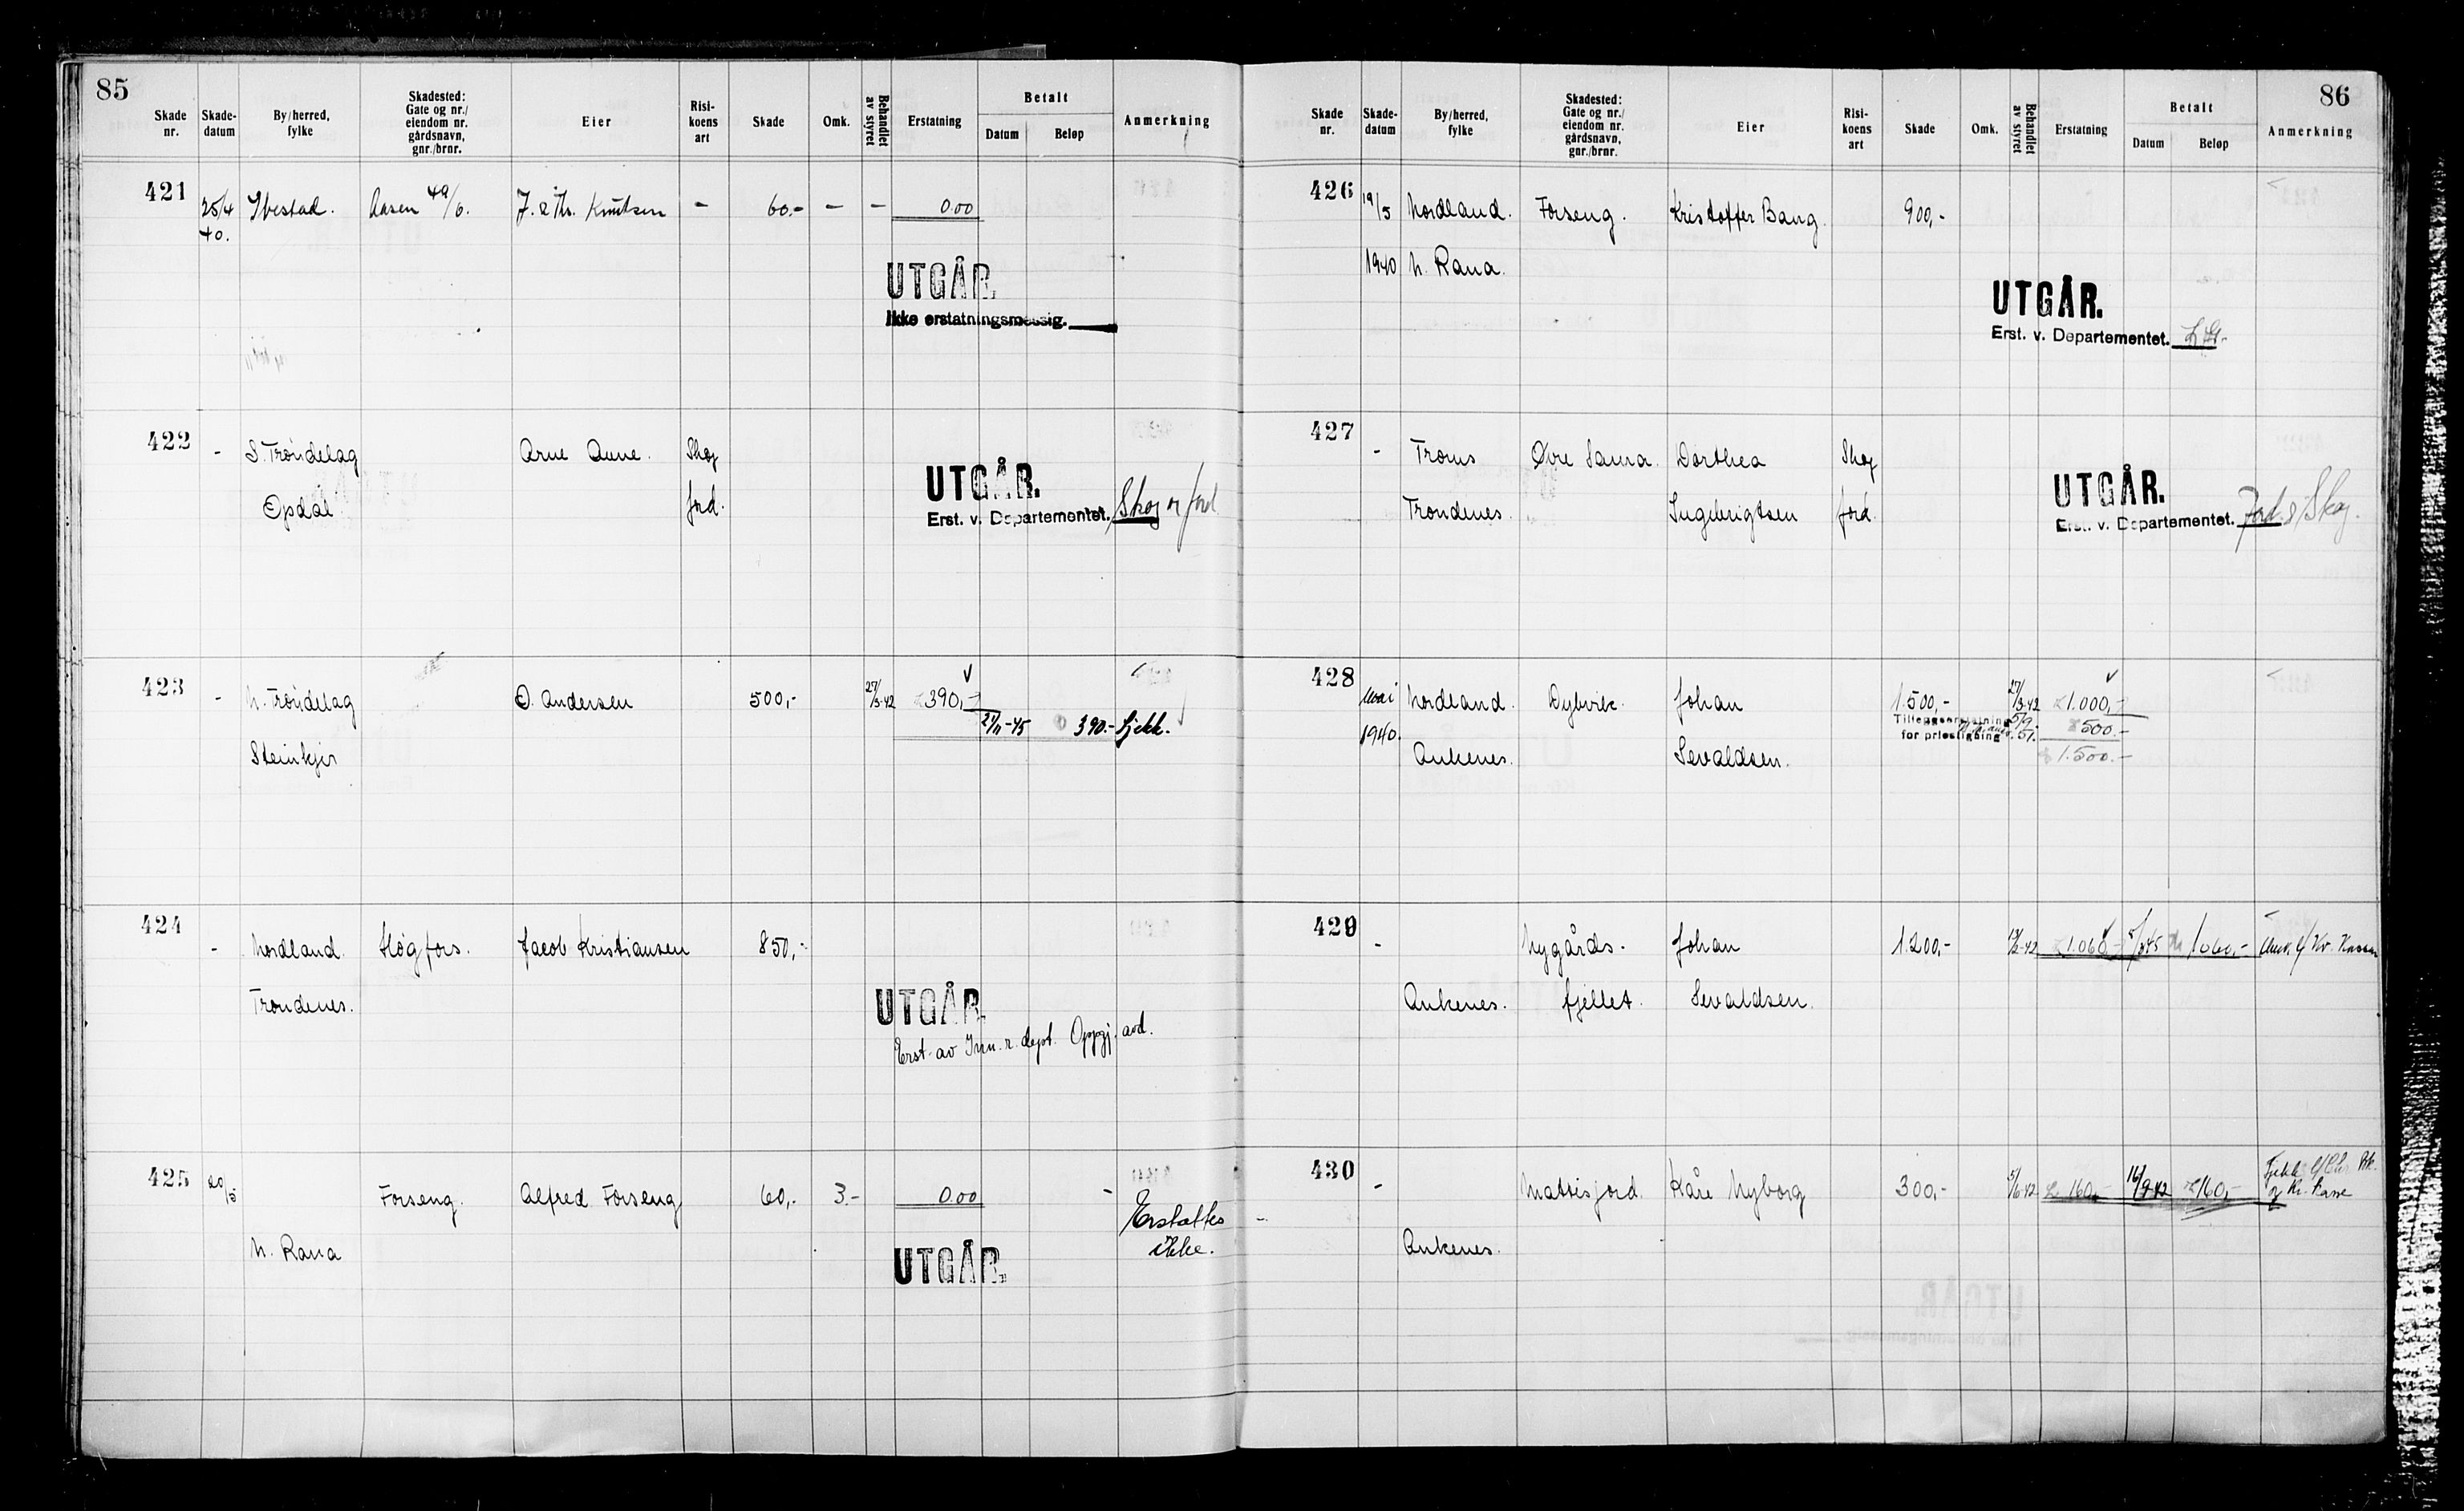 85
Skade nr. Skade-datum By/herred, fylke Skadested: Gate og nr./ eiendom nr. gårdsnavn, gnr./brnr. Eier Risi-koens art Skade Omk. Behandlet av styret Erstatning Betalt Datum Beløp Anmerkning
421 25/4 Ibestad. Aasen 49/6. J. & Th. Knutsen - 60.- - - 0.00
40.
UTGÅR.
Ikke erstatningsmessig.
422 - S. Trøndelag Arne Aune. Skog
Opdal jord.
UTGÅR.
Erst. v. Departementet. Skog og jord
423 - N. Trøndelag O. Andersen 500,- 27/3-42 390,-
21/11-45 390.- Sjekk.
Steinkjer
424 - Nordland. Høgfors. Jacob Kristiansen 850,-
Trondenes.
UTGÅR
Erst. av Inn.r.dept. Oppgj. avd.
425 20/5 Forseng. Alfred Forseng 60,- 3.- 0.00 -
Erstattes
N. Rana ikke.
UTGÅR.
86
Skade nr. Skade-datum By/herred, fylke Skadested: Gate og nr./ eiendom nr. gårdsnavn, gnr./brnr. Eier Risi-koens art Skade Omk. Behandlet av styret Erstatning Betalt Datum Beløp Anmerkning
426 19/5 Nordland. Forseng. Kristoffer Bang. 900,-
1940 N. Rana.
UTGÅR.
Erst. v. Departementet.
427 - Troms Øvre Sama. Dorthea Skog
Trondenes. Ingebrigtsen jord.
UTGÅR.
Erst. v. Departementet. Jord & Skog.
428 Mai Nordland. Dybvik. Johan 1.500,- 27/3-42 1.000,-
Tilleggserstatning 5/9- 500.-
1940. for prisstigning 51.
Ankenes. Sevaldsen. 1.500.-
429 - Nygårds- Johan 1.200,- 1.060,- 1060,- Anv. g/ Kr. Kassen
Ankenes. fjellet. Sevaldsen.
430 - Mattisjord. Kåre Nyborg 300,- 5/6-42 160,- 16/9-42 160,-
Kr. Kasse
Ankenes.